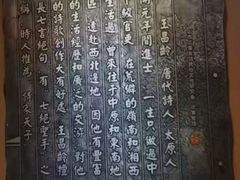 王昌齡 唐代詩人 太原人
開元年間進士 一生只做過中
級官吏 在荒僻的嶺南和湘西
生活過 曾來往于中原和東南地
區 遠赴西北邊地 因他有豐富
的生活經歷和廣泛的交游 對他
的詩歌創作大有好處 王昌齡擅
長七言絕句 有七絕聖手之
稱 時人推為 詩家夫子